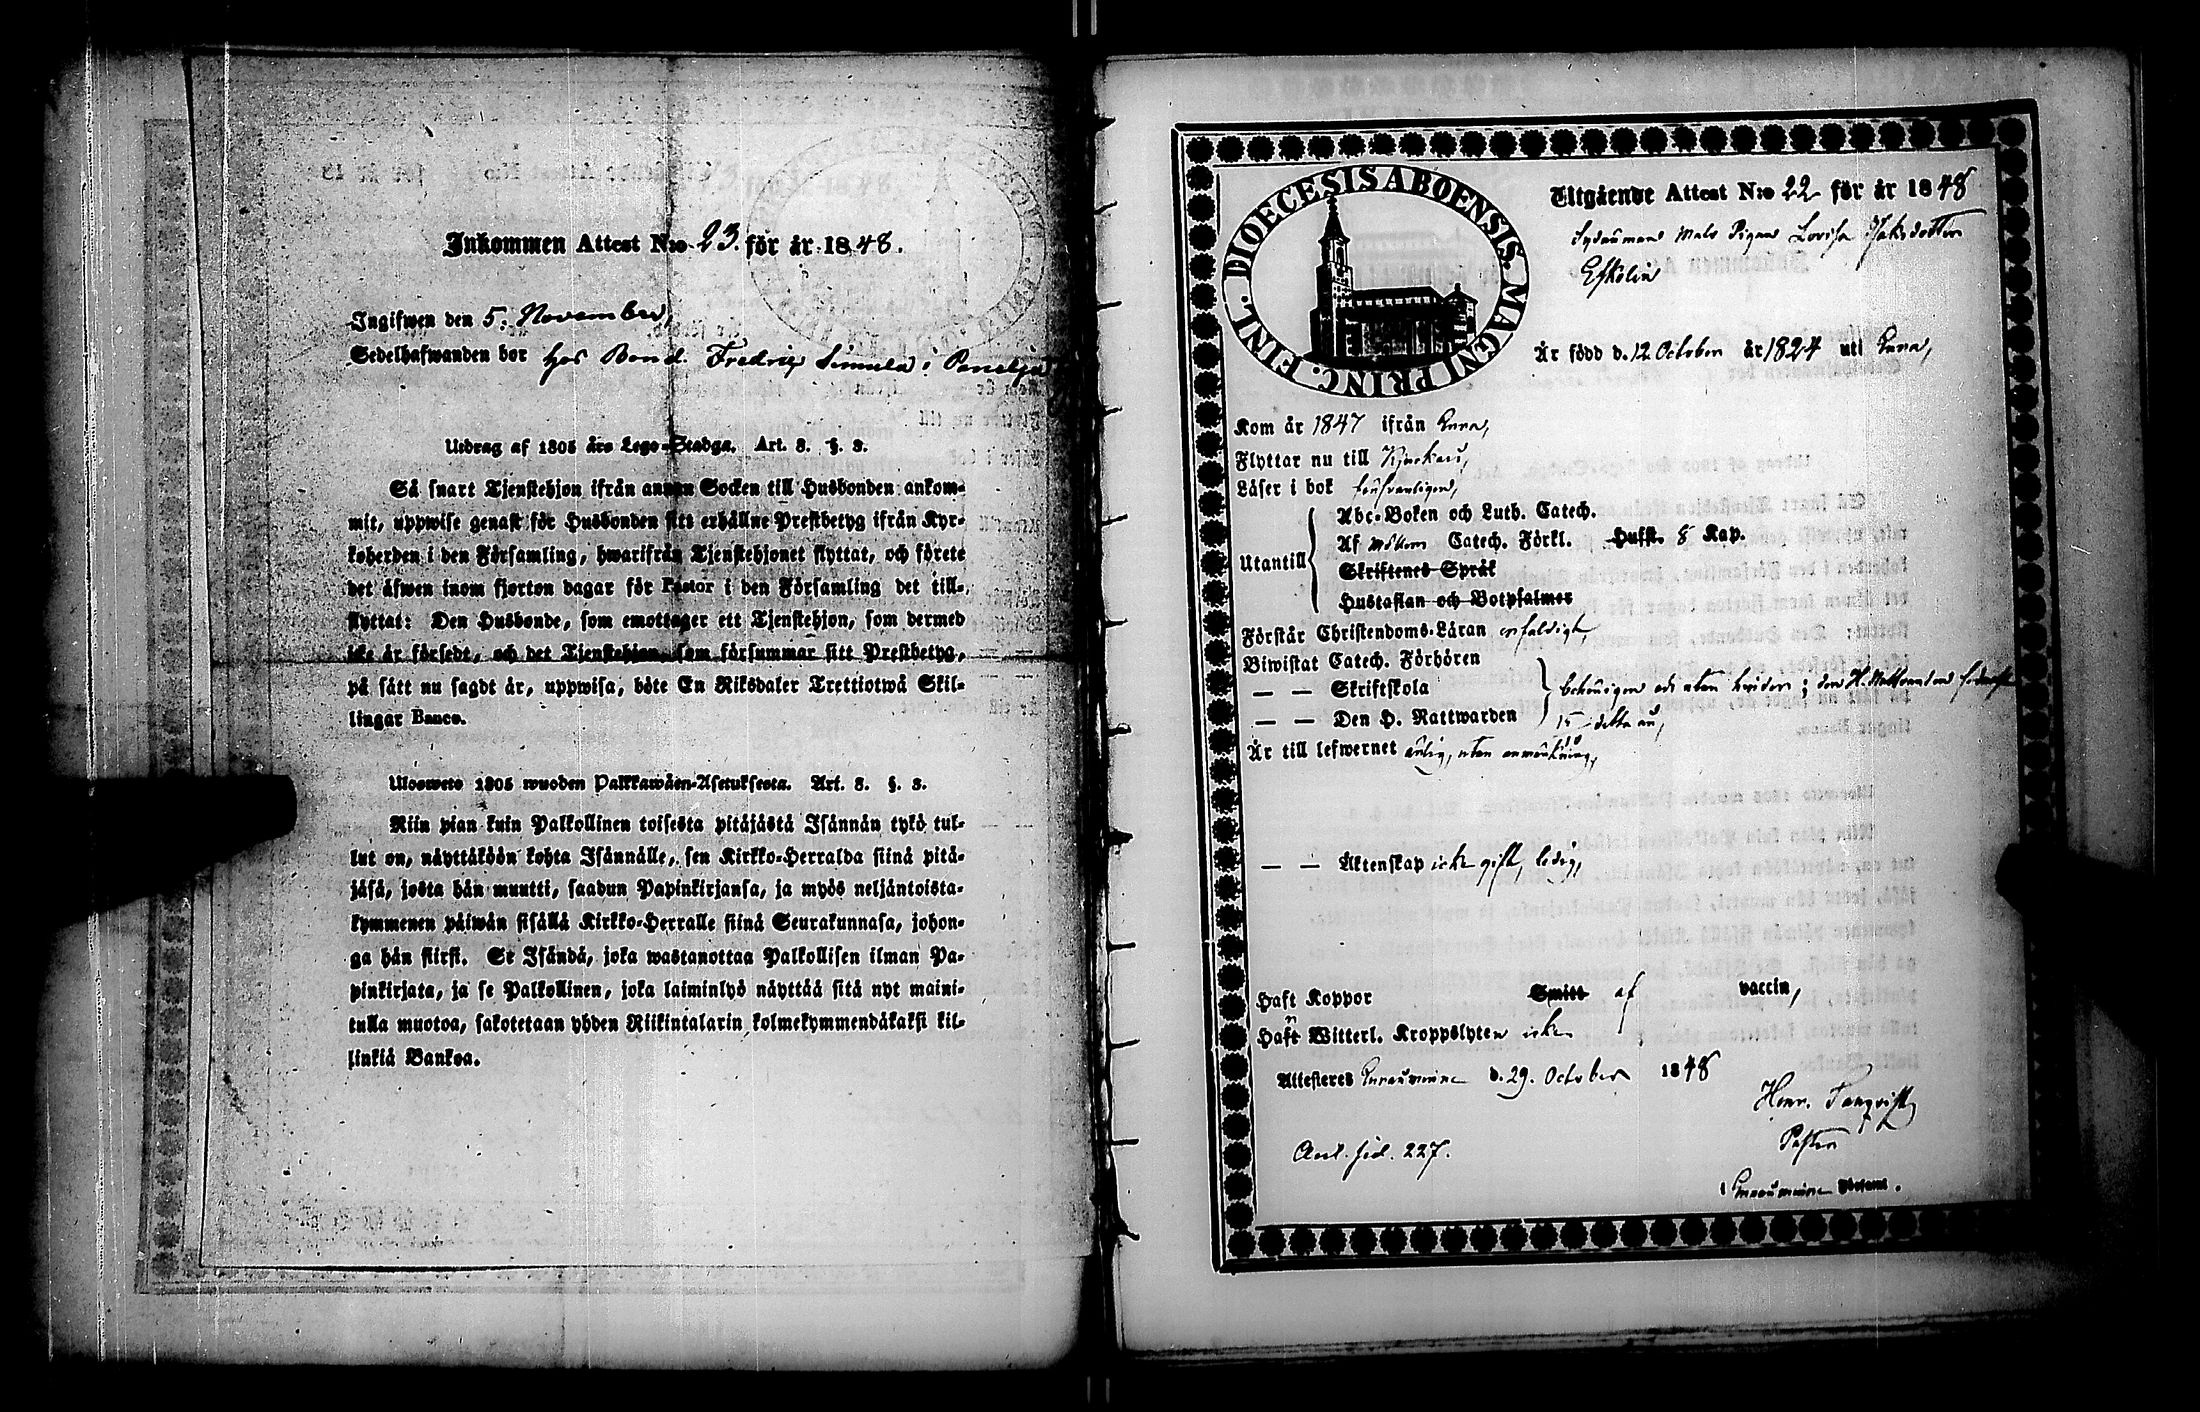 Inkommen Attest N:o 23. för år 1848.
Ingifwen den 5. November,
Sedelhafwanden bor hos Bond. Fredric Simula i Panelja
Utdrag af 1805 års Lego-Stadga. Art. 3. §. 3.
Så snart Tjenstehjon ifrån annan Socken till Husbonden ankom-
mit, uppwise genast för Husbonden sitt erhållne Prestbetyg ifrån Kyr-
koherden i den Församling, hwarifrån Tjenstehjonet flyttat, och förete
det äfwen inom fjorton dagar för Pastor i den Församling det till-
flyttat: Den Husbonde, som emottager ett Tjenstehjon, som dermed
icke är försedt, och det Tjenstehjon, som försummar sitt Prestbetyg,
på sätt nu sagdt är, uppwisa, böte En Riksdaler Trettiotwå Skil-
lingar Banco.
Ulosweto 1805 wuoden Palkkawäen-Asetuksesta. Art. 3. §. 3.
Niin pian kuin Palkollinen toisesta pitäjästä Isännän tykö tul-
lut on, näyttäköön kohta Isännälle, sen Kirkko-Herralda siinä pitä-
jäsä, josta hän muutti, saadun Papinkirjansa, ja myös neljäntoista-
kymmenen päiwän sisällä Kirkko-Herralle siinä Seurakunnasa, johon-
ga hän siirsi. Se Isändä, joka wastanottaa Palkollisen ilman Pa-
pinkirjata, ja se Palkollinen, joka laiminlyö näyttää sitä nyt maini-
tulla muotoa, sakotetaan yhden Riikintalarin kolmekymmendäkaksi kil-
linkiä Bankoa.
DIOECESIS ABOENSIS. MAGNI PRINC. FINL.
Utgående Attest N:o 22 för år 1848
Pigan Lovisa Jakobsdotter
Eskölin
Är född d. 12 October år 1824 uti Eura,
Kom år 1847 ifrån Eura,
Flyttar nu till Kjuckais,
Läser i bok
Utantill
Abc-Boken och Luth. Catech.
Af Catech. Förkl. Husft. 8 Kap.
Skriftenes Språk
Hustaflan och Botpsalmer
Förstår Christendoms-Läran enfaldigt,
Biwistat Catech. Förhören
— — Skriftskola
— — Den H. Nattwarden
behörigen och utan hinder; den H. Nattvarden sednast
15 detta år,
Är till lefwernet ärlig, utan anmärkning,
— — Äktenskap icke gift, ledig,
Haft Koppor Smitt af vaccin,
Haft Witterl. Kroppslyten icke
Attesteras Euraåminne d. 29. October 1848
Henr. Tanqvist
Pastor
Anl. sid. 227.
i Euraåminne Församl.